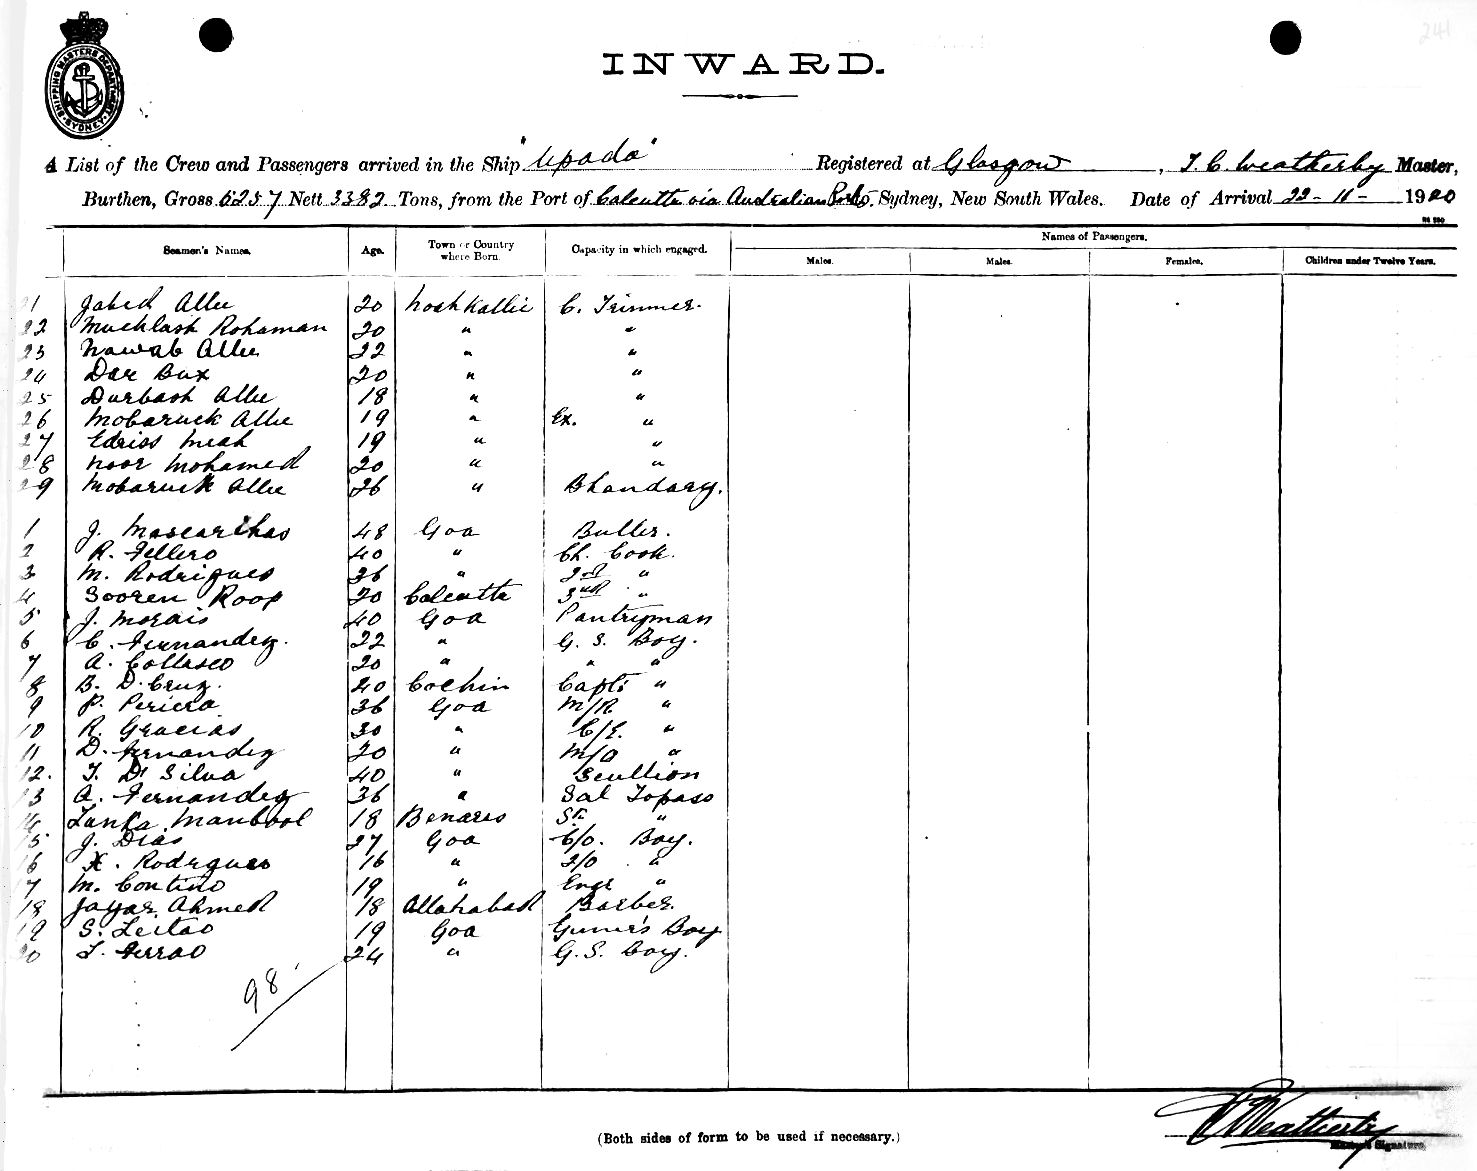 241
SHIPPING MASTERS DEPARTMENT
SYDNEY
INWARD.
A List of the Crew and Passengers arrived in the Ship "Upada" Registered at Glasgow, T. C. Weatherby Master,
Burthen, Gross 5257 Nett 3382 Tons, from the Port of Calcutta via Australian Ports, Sydney, New South Wales. Date of Arrival 22-11-1920
Names of Passengers.
Seamen's Names. Age. Town or Country where Born. Capacity in which engaged. Males. Males. Females. Children under Twelve Years.
21 Jabed Allie 20 Noahkallie C. Trimmer.
22 Muchlash Rohaman 20 " "
23 Nawab Allie 22 " "
24 Dar Bux 20 " "
25 Durbash Allie 18 " "
26 Mobaruck Allie 19 " Ex. "
27 Edriss Meah 19 " "
28 Noor Mohamed 20 " "
29 Mobaruck Allie 26 " Bhandary.
1 J. Mascarihas 48 Goa Butler.
2 R. Fellero 40 " Ch. Cook.
3 M. Rodrigues 36 " 2nd "
4 Sooren Roop 20 Calcutta 3rd "
5 J. Morais 40 Goa Pantryman
6 C. Fernandez. 22 " G. S. Boy.
7 A. Collasco 20 " " "
8 B. D'Cruz. 40 Cochin Capts "
9 P. Periera 36 Goa M/R. "
10 R. Gracias 30 " C/E. "
11 D. Fernandez 20 " M/O "
12. T. D'Silva 40 " Scullion
13 A. Fernandez 36 " Sal Topass
14 Manbool 18 Benares "
15 J. Dias 27 Goa C/O. Boy.
16 X. Rodrgues 16 " 2/O "
17 M. Contino 19 " Engr "
18 Jayar Ahmed 18 Allahabad Barber.
19 S. Leitao 19 Goa Gunner's Boy
20 T. Ferrao 24 " G. S. Boy.
98.
Weatherby
Master's Signature.
(Both sides of form to be used if necessary.)